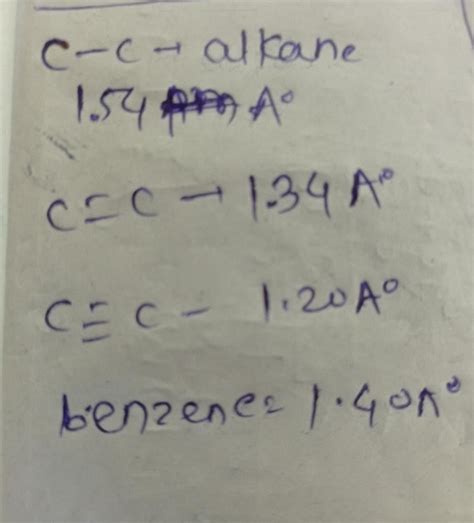 C-C→ alkane
1.54 A°
C=C → 1.34 A°
C≡C - 1.20A°
benzene= 1.40A°